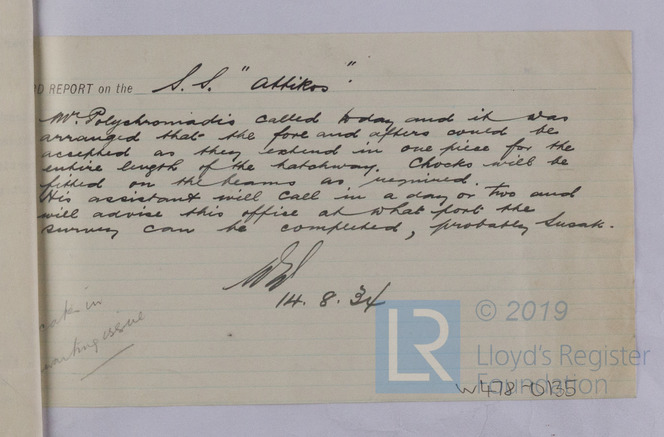 D REPORT on the S.S. "Attikos".
Mr. Polychroniadis called today and it was
arranged that the fore and afters could be
accepted as they extend in one piece for the
entire length of the hatchway. Chocks will be
fitted on the beams as required.
His assistant will call in a day or two and
will advise this office at what port the
survey can be completed, probably Susak.
14.8.34
in
© 2019
LR
Lloyd's Register
Foundation
W478-0135